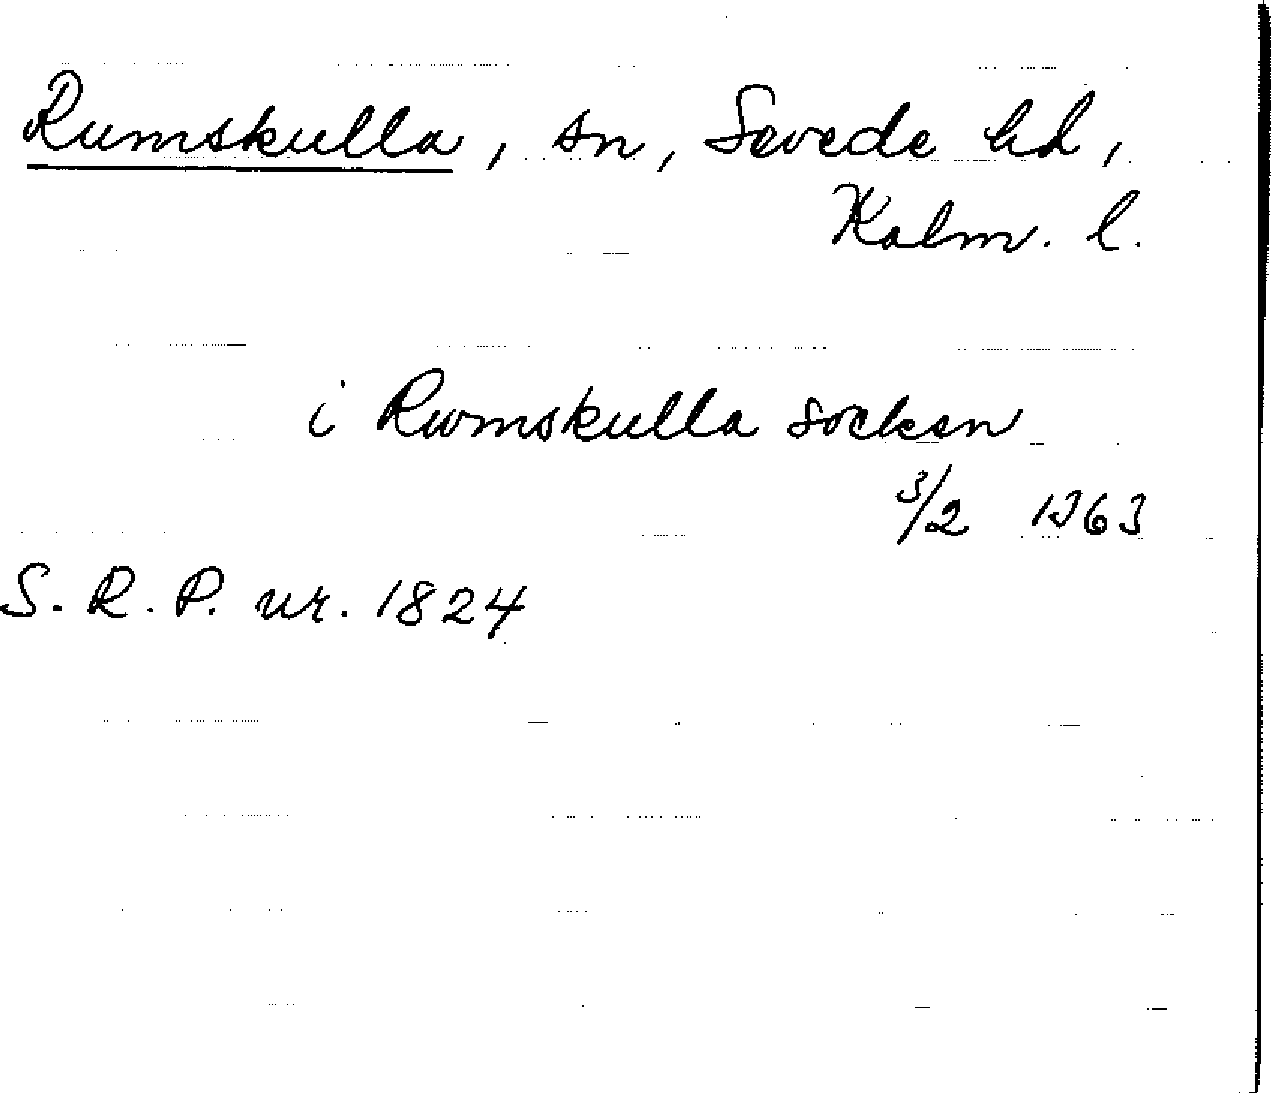 Rumskulla, sn, Sevede hd,
Kalm. l.
i Rumskulla socken
3/2 1363
S. R. P. nr. 1824